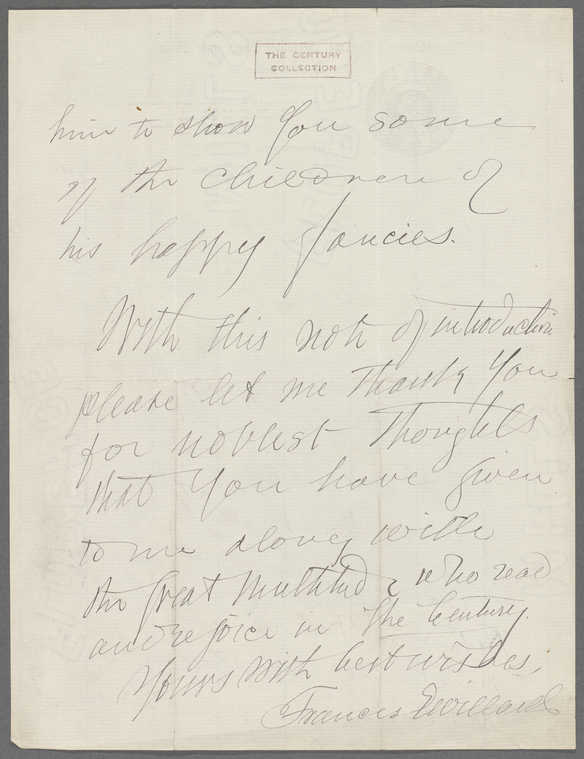 THE CENTURY
COLLECTION
him to show you some
of the children of
his happy fancies.
With this note of introduction
please let me thank you
for noblest thoughts
that you have given
to me along with
the great multitude who read
and rejoice in The Century.
Yours with best wishes,
Frances E Willard